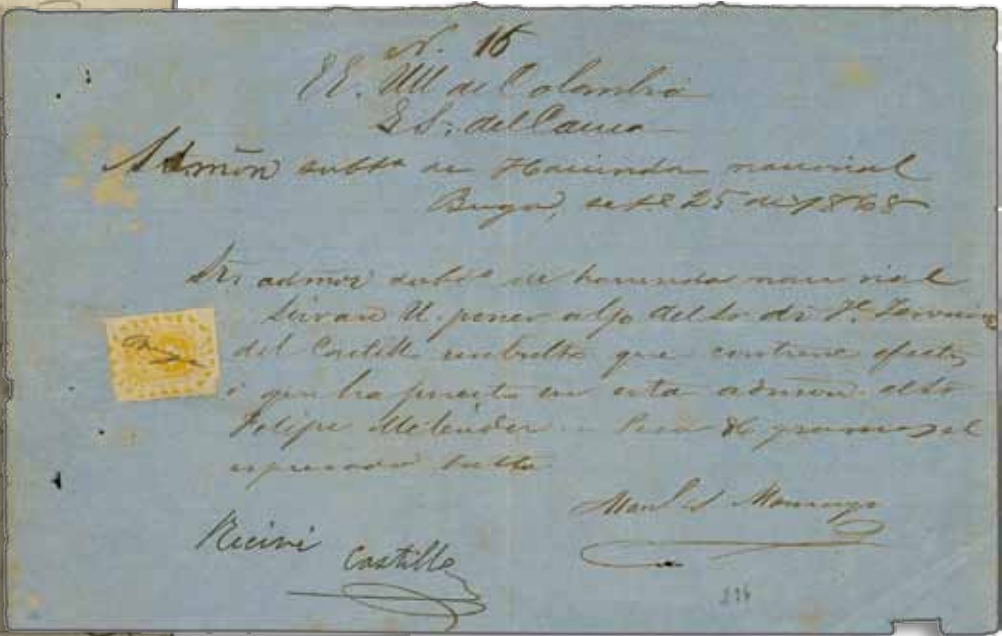 N. 16
EE. UU de Colombia
E. S. del Cauca
Admon subta de Hacienda nacional
Buga, set.e 25 de 1868
Sr. admor subo de hacienda nacional
Sirvase U. poner a
del Castillo un bulto que contiene efectos
i que ha puesto en esta admon. el Sr
Felipe Melendez Pesa 86 gramos el
espresado bulto
Buga
Manl
Recivi
Castillo